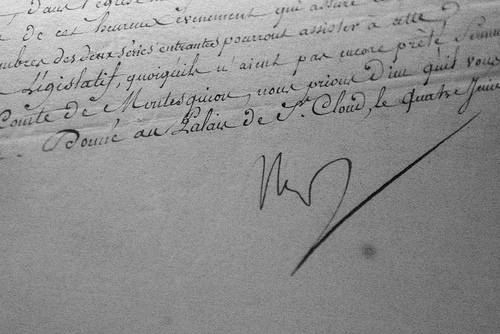 , dans l'église
de cet heureux événement qui assure
mbres des deux séries entrantes pourront assister à cette
Législatif, quoiqu'ils n'aient pas encore prêté Serm
Comte de Montesquiou, nous prions Dieu qu'il vous
Donné au Palais de St. Cloud, le quatre Juin